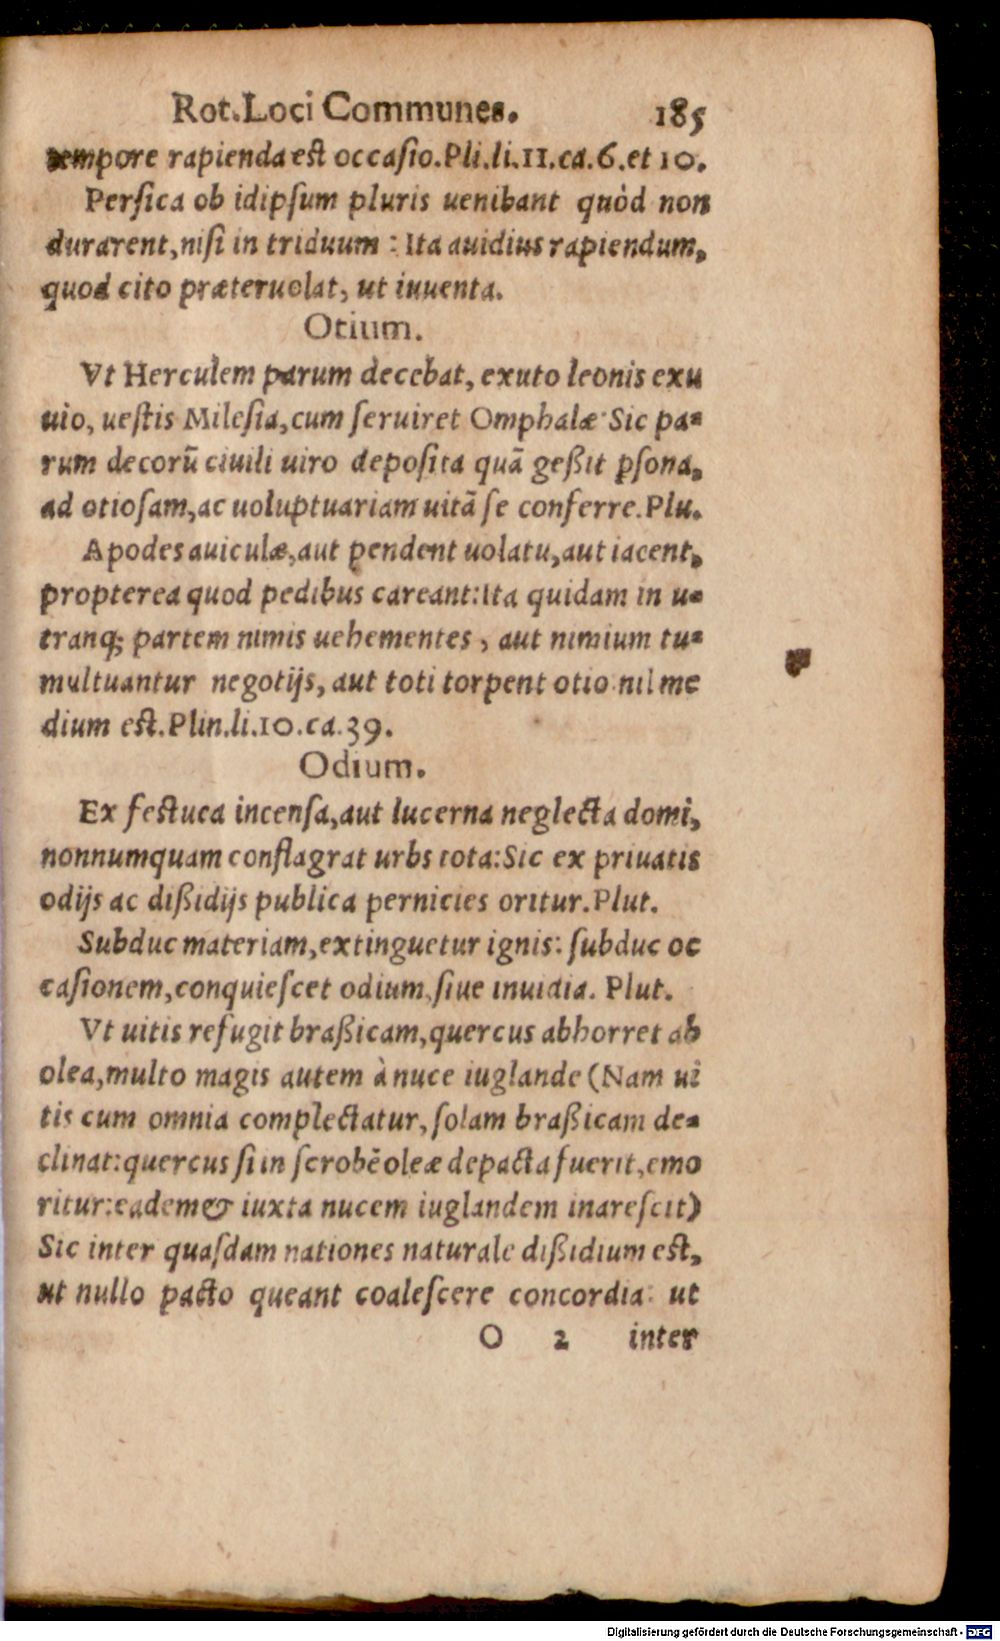 Rot. Loci Communes. 185
tempore rapienda est occasio. Pli. li. 11. ca. 6. et 10.
Persica ob idipsum pluris uenibant quòd non
durarent, nisi in triduum : Ita auidius rapiendum,
quod cito præteruolat, ut iuuenta.
Otium.
Vt Herculem parum decebat, exuto leonis exu
uio, uestis Milesia, cum seruiret Omphalæ: Sic pa-
rum decorū ciuili uiro deposita quā geßit psona,
ad otiosam, ac uoluptuariam uitā se conferre. Plu.
Apodes auiculæ, aut pendent uolatu, aut iacent,
propterea quod pedibus careant: Ita quidam in u-
tranq; partem nimis uehementes, aut nimium tu-
multuantur negotijs, aut toti torpent otio. nil me
dium est. Plin. li. 10. ca. 39.
Odium.
Ex festuca incensa, aut lucerna neglecta domi,
nonnumquam conflagrat urbs tota: Sic ex priuatis
odijs ac dißidijs publica pernicies oritur. Plut.
Subduc materiam, extinguetur ignis: subduc oc
casionem, conquiescet odium, siue inuidia. Plut.
Vt uitis refugit braßicam, quercus abhorret ab
olea, multo magis autem à nuce iuglande (Nam ui
tis cum omnia complectatur, solam braßicam de-
clinat: quercus si in scrobē oleæ depacta fuerit, emo
ritur: eadem & iuxta nucem iuglandem inarescit)
Sic inter quasdam nationes naturale dißidium est,
ut nullo pacto queant coalescere concordia: ut
O 2 inter
Digitalisierung gefördert durch die Deutsche Forschungsgemeinschaft - DFG